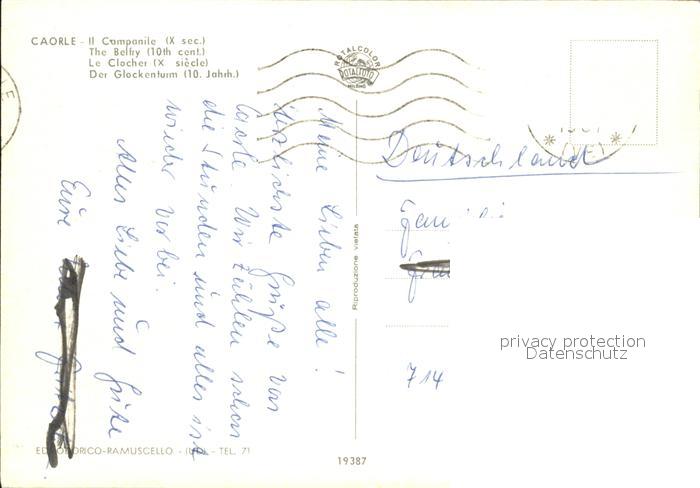 CAORLE - Il Campanile (X sec.)
The Belfry (10th cent.)
Le Clocher (X siècle)
Der Glockenturm (10. Jahrh.)
ROTALCOLOR
ROTALFOTO
MILANO
Meine Lieben alle!
Herzlichste Grüße von
Caorle. Wir zählen schon
die Stunden und alles ist
wieder vorbei.
Alles Liebe und Gute
Eure
Riproduzione vietata
Deutschland
714
(VE)
privacy protection
Datenschutz
RAMUSCELLO - TEL. 71
19387